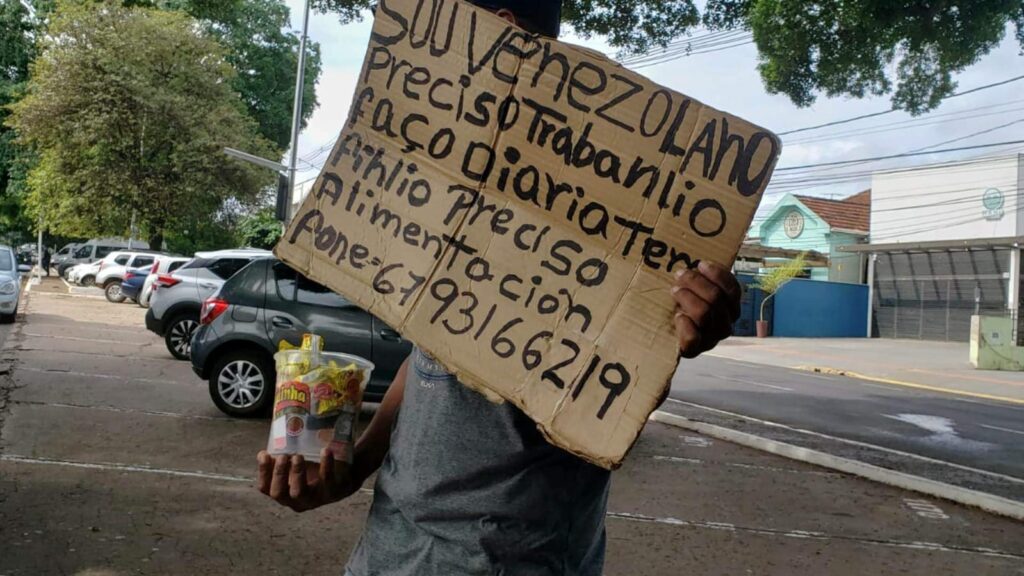 SOU VenezOLANO
PrecisoTrabanlio
faço DiariaTem
Fihlio Preciso
Alimenttación
fone=67 93166219
inha